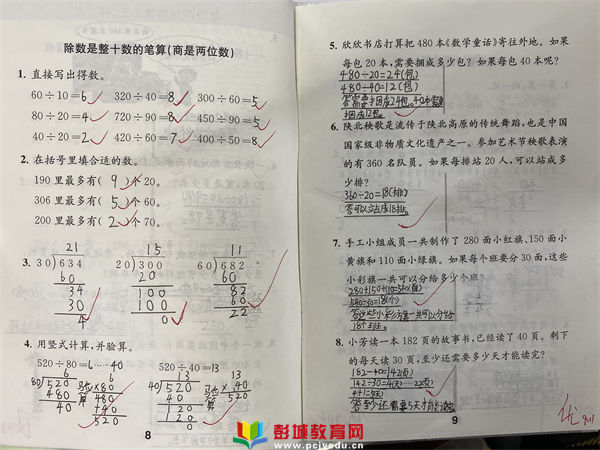 除数是整十数的笔算(商是两位数)
1. 直接写出得数。
60÷10=6 320÷40=8 300÷60=5
80÷20=4 720÷90=8 450÷90=5
40÷20=2 420÷60=7 400÷50=8
2. 在括号里填合适的数。
190 里最多有( 9 )个 20。
306 里最多有( 5 )个 60。
200 里最多有( 2 )个 70。
21 15 11
3. 30)634 20)300 60)682
60 20 60
34 100 82
30 100 60
4 0 22
4. 用竖式计算,并验算。
520÷80=6……40 520÷40=13
6 6 13 13
80)520 验算 ×80 40)520 ×40
480 480 40 520
40 +40 120
520 120
0
8
5. 欣欣书店打算把 480 本《数学童话》寄往外地。如果
每包 20 本,需要捆成多少包?如果每包 40 本呢?
480÷20=24(包)
480÷40=12(包)
6. 陕北秧歌是流传于陕北高原的传统舞蹈,也是中国
国家级非物质文化遗产之一。参加艺术节秧歌表演
的有 360 名队员。如果每排站 20 人,可以站成多
少排?
360÷20=18(排)
答:可以站成18排。
7. 手工小组成员一共制作了 280 面小红旗、150 面小
黄旗和 110 面小绿旗。如果每个班要分 30 面,这些
小彩旗一共可以分给多少个班?
280+150+110=540(面)
540÷30=18(个)
答:这些小彩旗一共可以分给
18个班。
8. 小芳读一本 182 页的故事书,已经读了 40 页。剩下
的每天读 30 页,至少还需要多少天才能读完?
182-40=142(页)
142÷30=4(天)……22(页)
4+1=5(天)
答:至少还需要5天才能读完。
9
优
彭城教育网
www.pcjyedu.cn